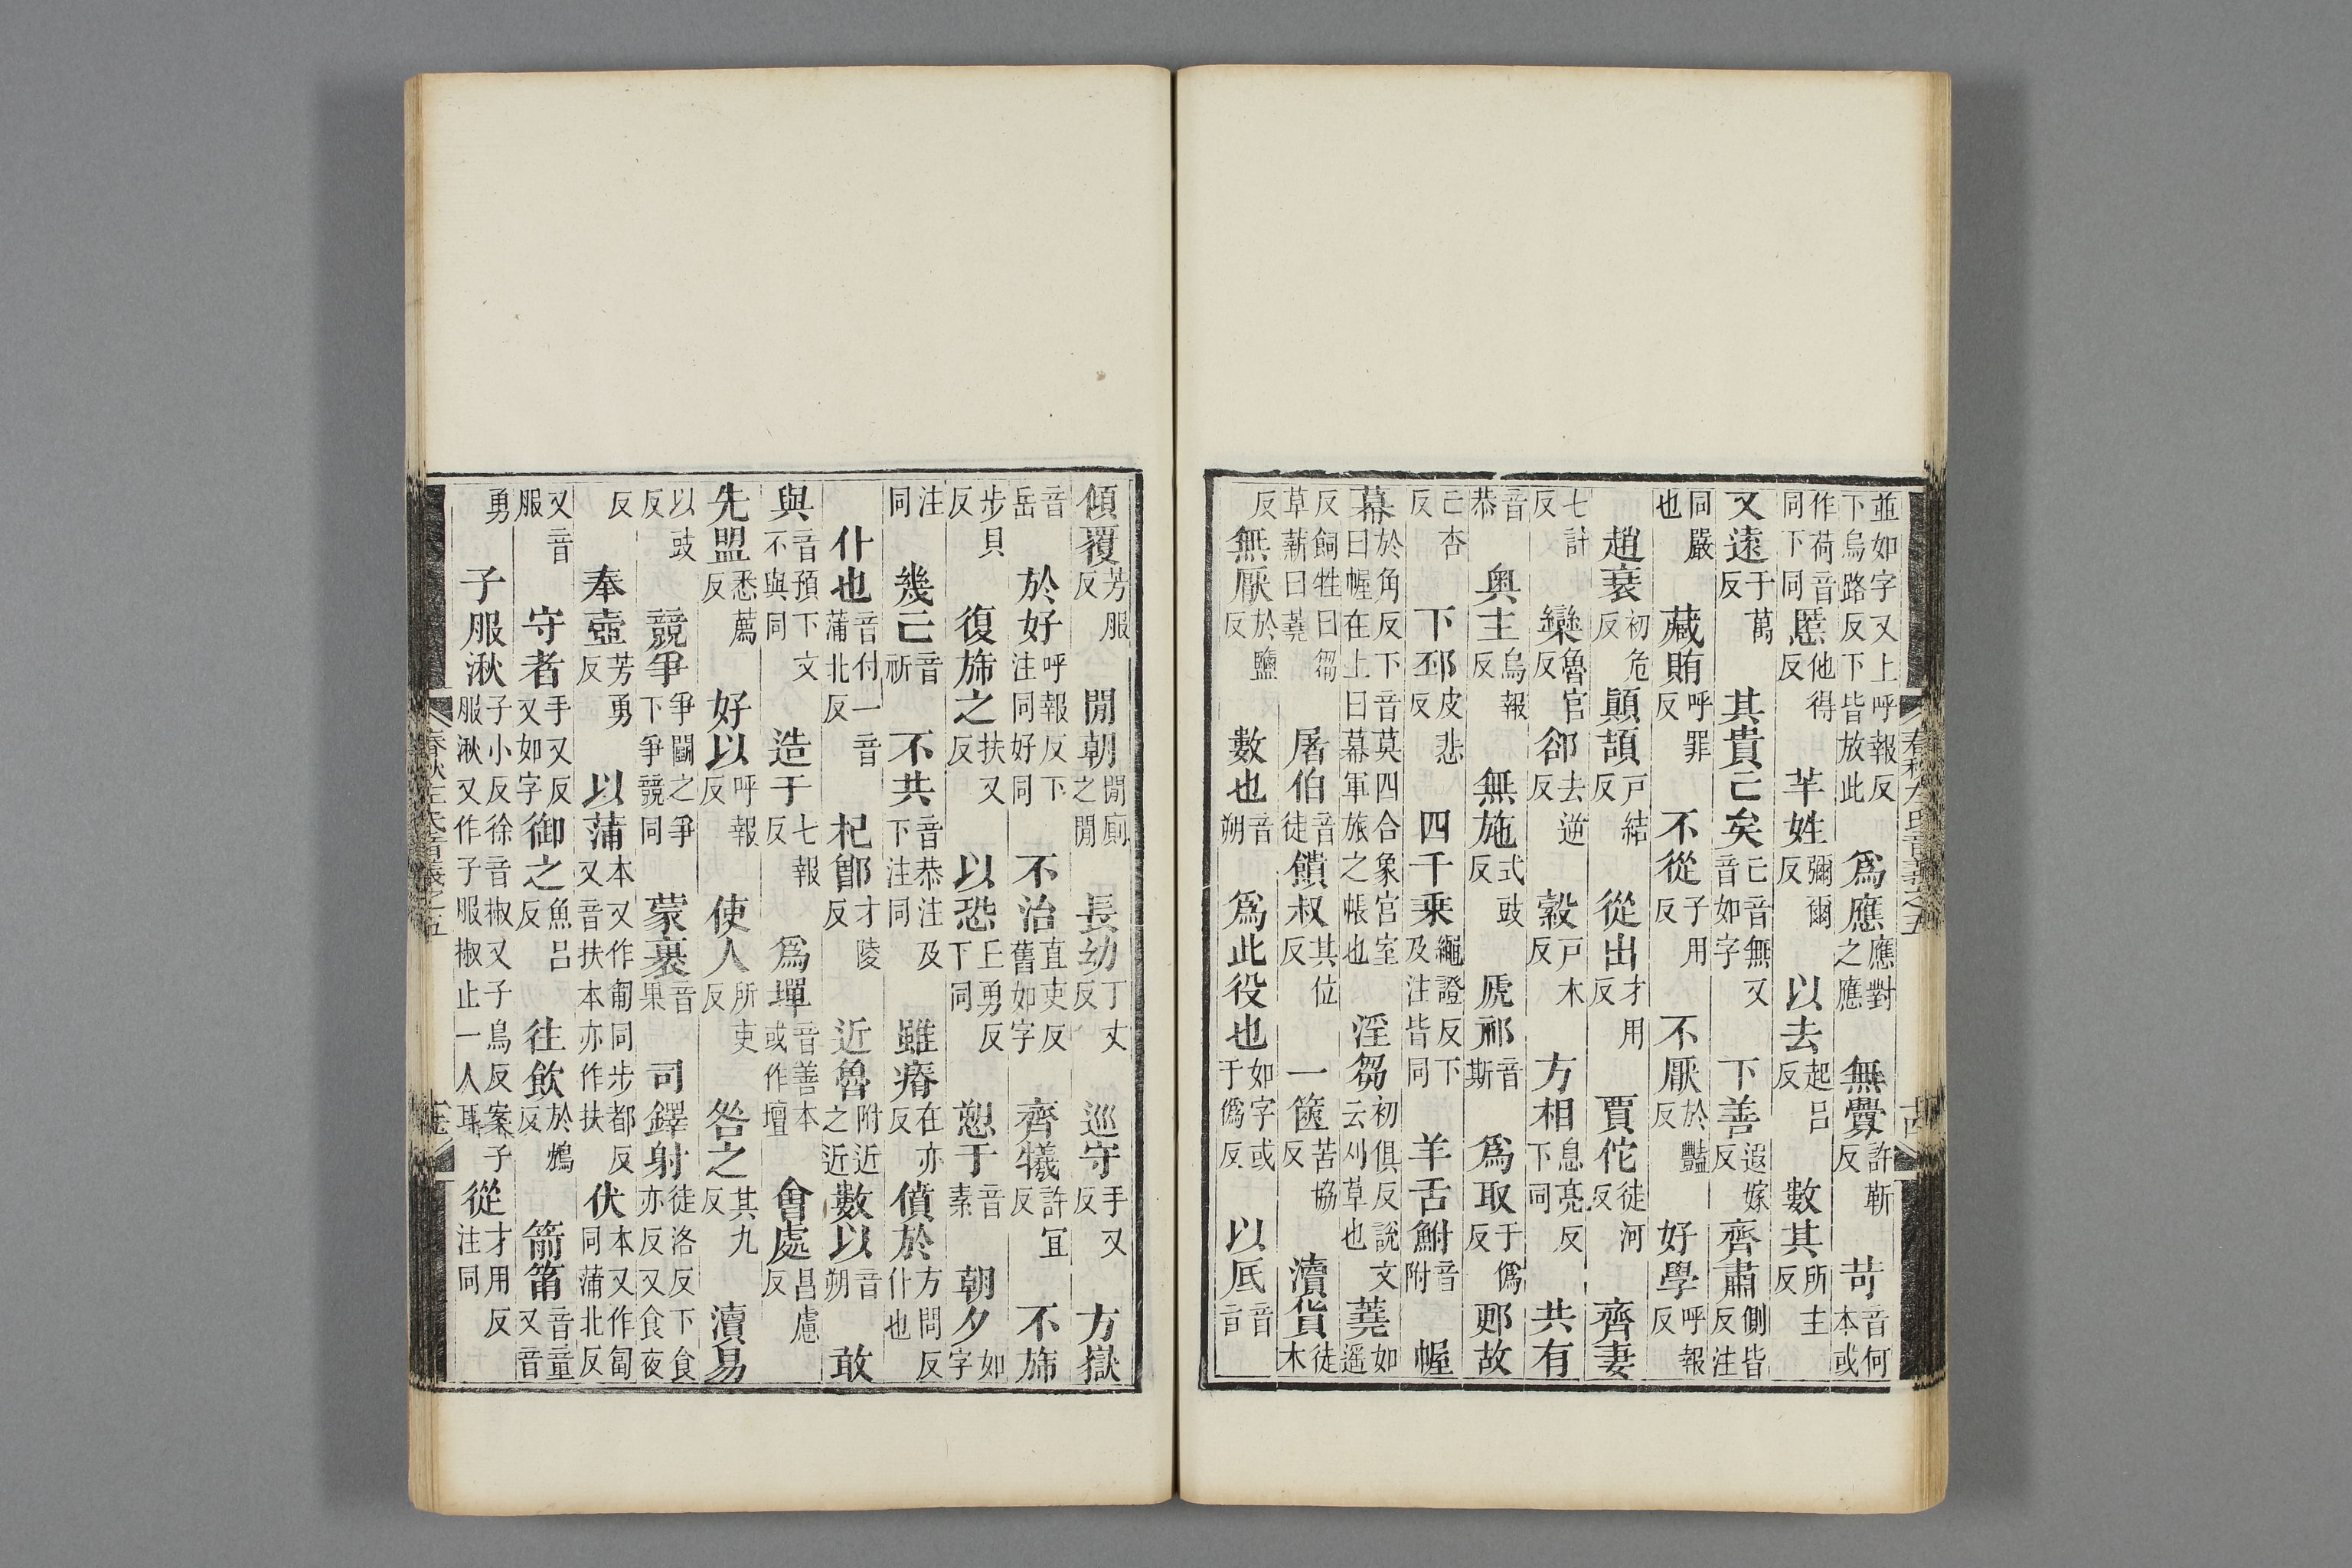 並如字又上呼報反下烏路反下皆放此爲應應對之應無釁許靳反苛音何本或
作荷音同下同慝他得反羋姓彌爾反以去起呂反數其所主反
又遠于萬反其貴已矣已音無又音如字下善遐嫁反齊肅側皆反注
同嚴也藏賄呼罪反不從子用反不厭於豔反好學呼報反
趙衰初危反顚頡戸結反從出才用反賈佗徒河反齊妻
七計反欒魯官反郤去逆反縠戸木反方相息亮反下同共有
音恭奥主烏報反無施式豉反虒祁音斯爲取于僞反郠故
亡杏反下邳皮悲反四千乗繩證反下及注皆同羊舌鮒音附幄
幕於角反下音莫四合象宮室曰幄在上曰幕軍旅之帳也淫芻初俱反説文云刈草也蕘如遥
反飼牲曰芻草薪曰蕘屠伯音徒饋叔其位反一篋苦協反瀆貨徒木
反無厭於鹽反數也音朔爲此役也如字或于僞反以厎音
春秋左氏音義之五 十四
傾覆芳服反閒朝閒廁之閒長幼丁丈反巡守手又反方嶽
音岳於好呼報反下注同好同不治直吏反舊如字齊犧許宜反不旆
步貝反復旆之扶又反以恐上勇反下同愬于音素朝夕如字
注同幾已音祈不共音恭注及下注同雖瘠在亦反僨於方問反什也
什也音付一音蒲北反杞鄫才陵反近魯附近之近數以音朔敢
與音預下文不與同造于七報反爲墠音善本或作壇會處昌慮反
先盟悉薦反好以呼報反使人所吏反咎之其九反瀆易
以豉反競爭爭鬭之爭下爭競同蒙裹音果司鐸射徒洛反下食亦反又食夜
反奉壺芳勇反以蒲本又作匍同步都反又音扶本亦作扶伏本又作匐同蒲北反
又音服守者手又反又如字御之魚呂反往飲於鴆反箭筩音童又音
勇子服湫子小反徐音椒又子鳥反案子服湫又作子服椒止一人耳從才用反注同
春秋左氏音義之五